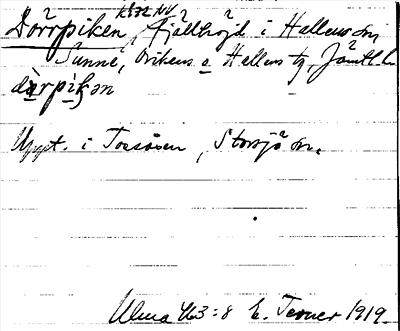 Dörrpiken, fjällhöjd i Hallens sn,
Sunne, Ovikens o Hallens tg, Jämtl.
dɑ̀rpikən
Uppt. i Tossåsen, Storsjö sn.
Ulma 463:8 E. Terner 1919.